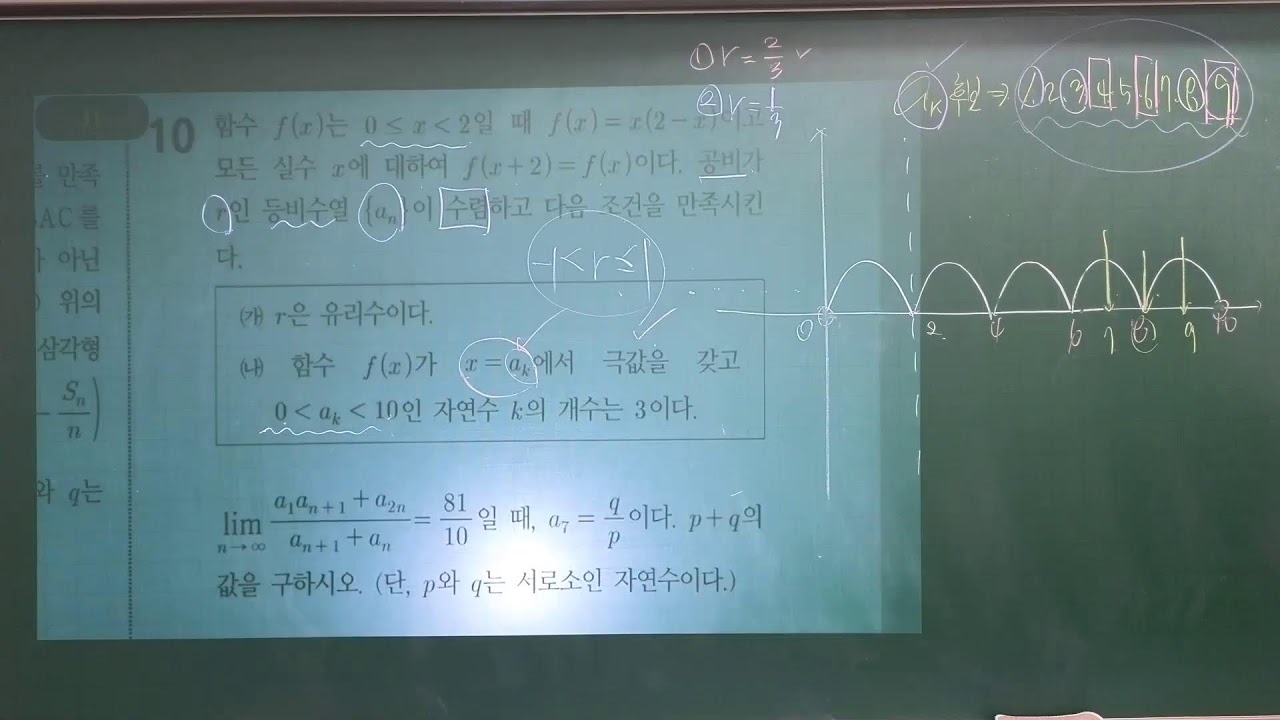 ① r = 2/3 ✓
② r = 1/3
aₖ 후보 ⇒ 1. 2 ③ 4 5 6 7. ⑧ 9
10 함수 f(x)는 0 ≤ x < 2일 때 f(x) = x(2 − x)이고
모든 실수 x에 대하여 f(x+2) = f(x)이다. 공비가
r인 등비수열 {aₙ}이 수렴하고 다음 조건을 만족시킨
다.
-1 < r ≤ 1
㈎ r은 유리수이다.
㈏ 함수 f(x)가 x = aₖ에서 극값을 갖고
0 < aₖ < 10인 자연수 k의 개수는 3이다.
lim n→∞ (a₁aₙ₊₁ + a₂ₙ)/(aₙ₊₁ + aₙ) = 81/10 일 때, a₇ = q/p 이다. p+q의
값을 구하시오. (단, p와 q는 서로소인 자연수이다.)
를 만족
AC를
아닌
위의
삼각형
Sₙ/n)
와 q는
0 2 4 6 7 8 9 10